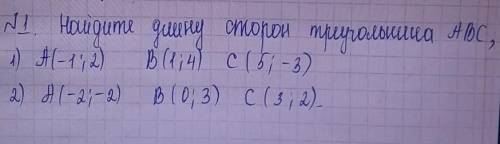 №1. Найдите длину сторон треугольника ABC,
1) A(-1;2) B(1;4) C(5;-3)
2) A(-2;-2) B(0;3) C(3;2)